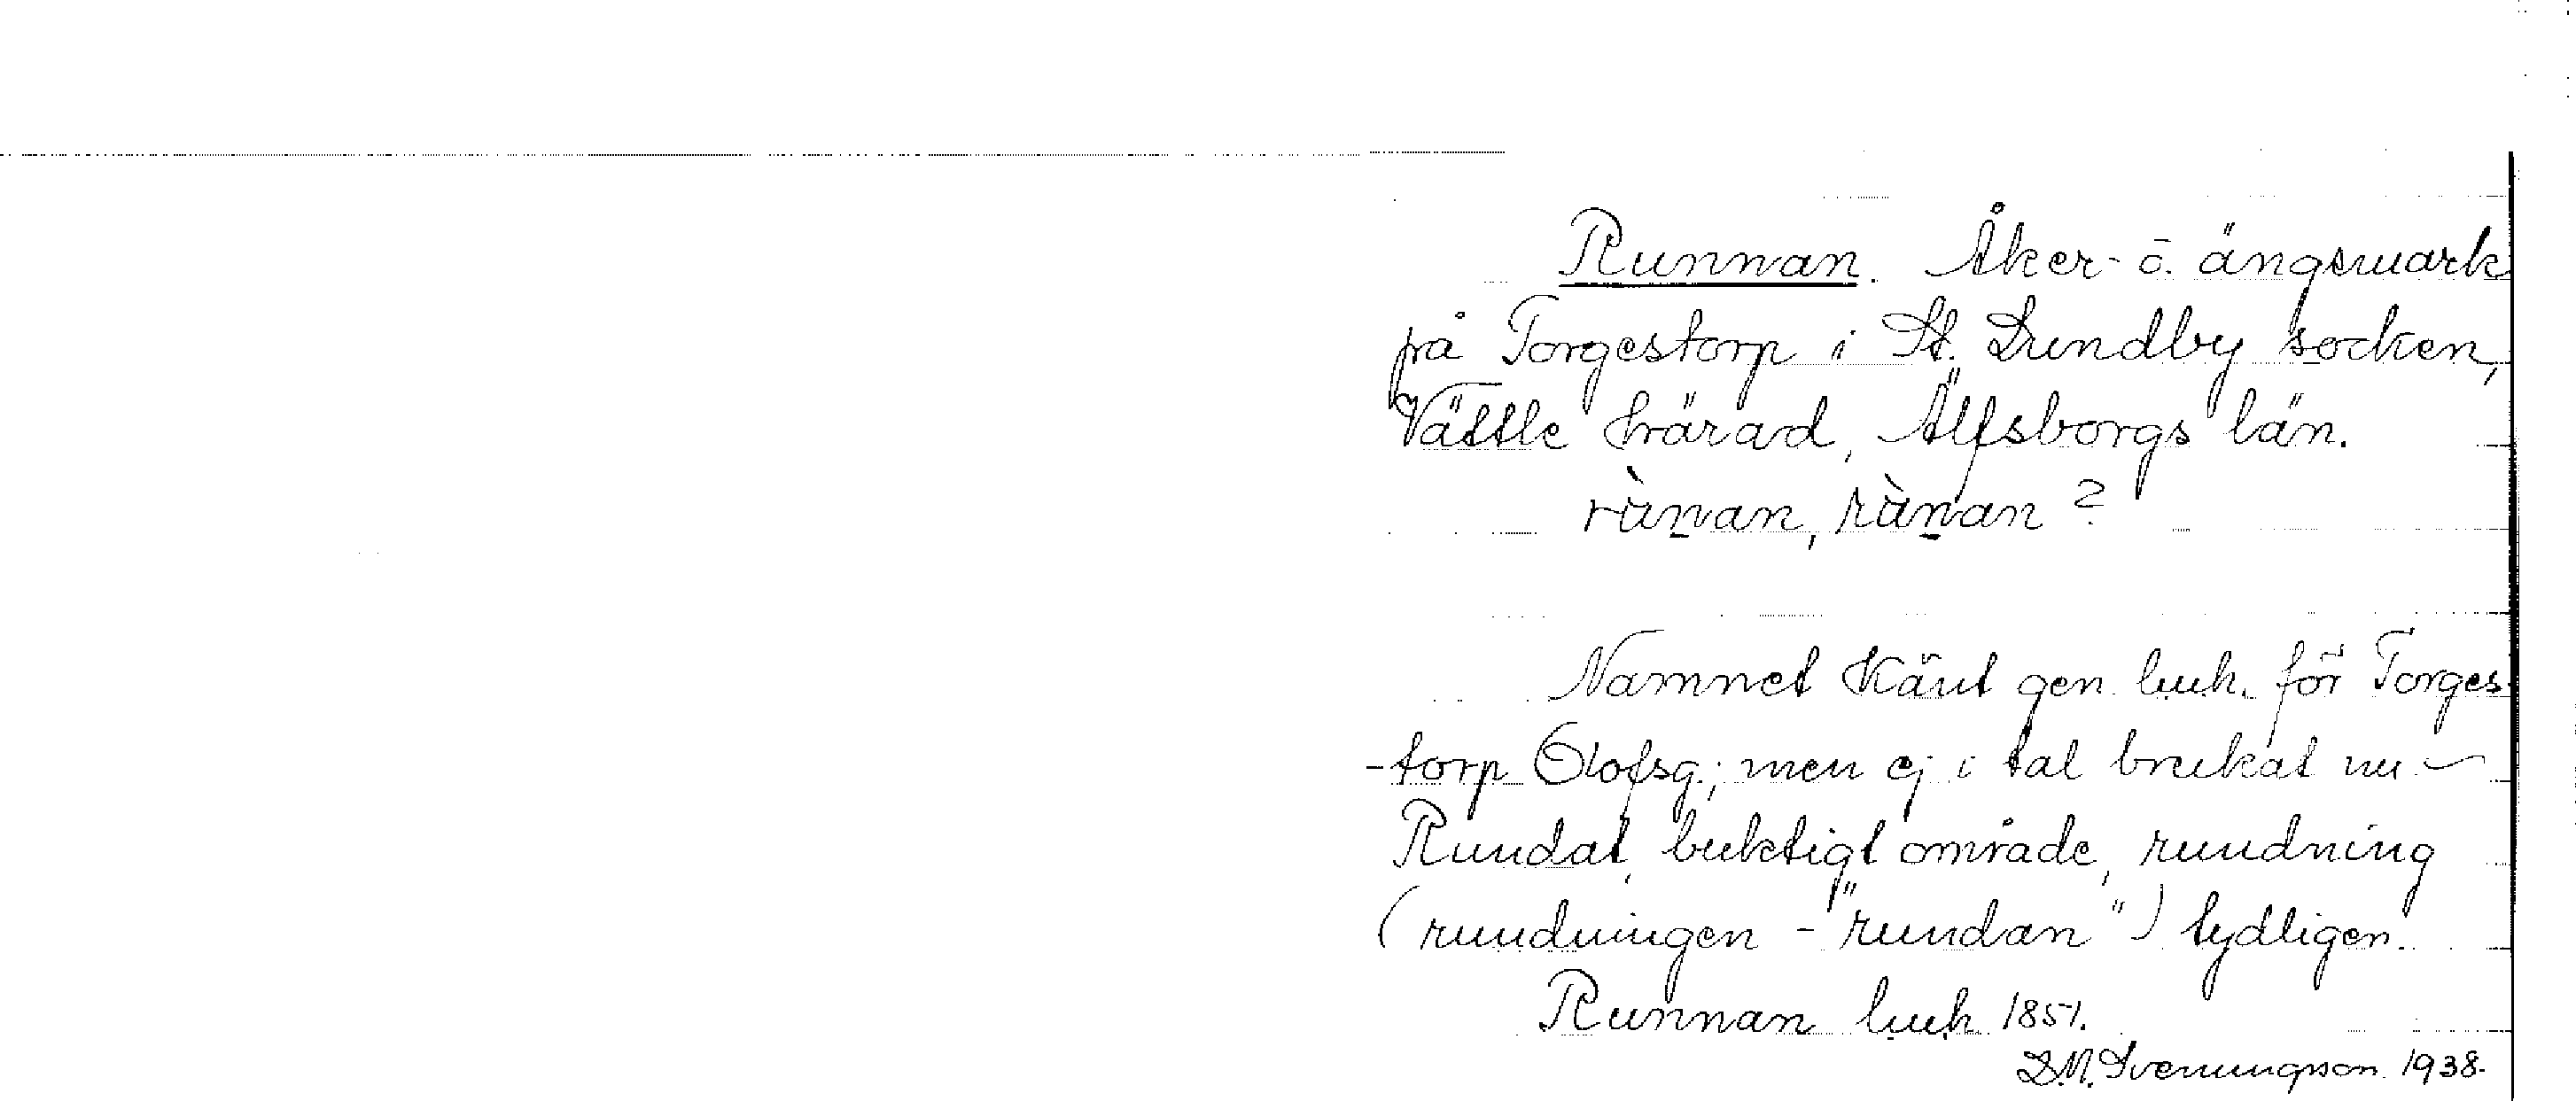 Runnan. Åker- o. ängsmark
på Torgestorp i St. Lundby socken,
Vättle härad, Älfsborgs län.
rùnan, rùnan ?
Namnet känt gen. luk. för Torges-
-torp Olofsg.; men ej i tal brukat nu –
Rundat, buktigt område, rundning
(rundningen - "rundan") tydligen.
Runnan luk 1851.
D.M. Svenungsson 1938.